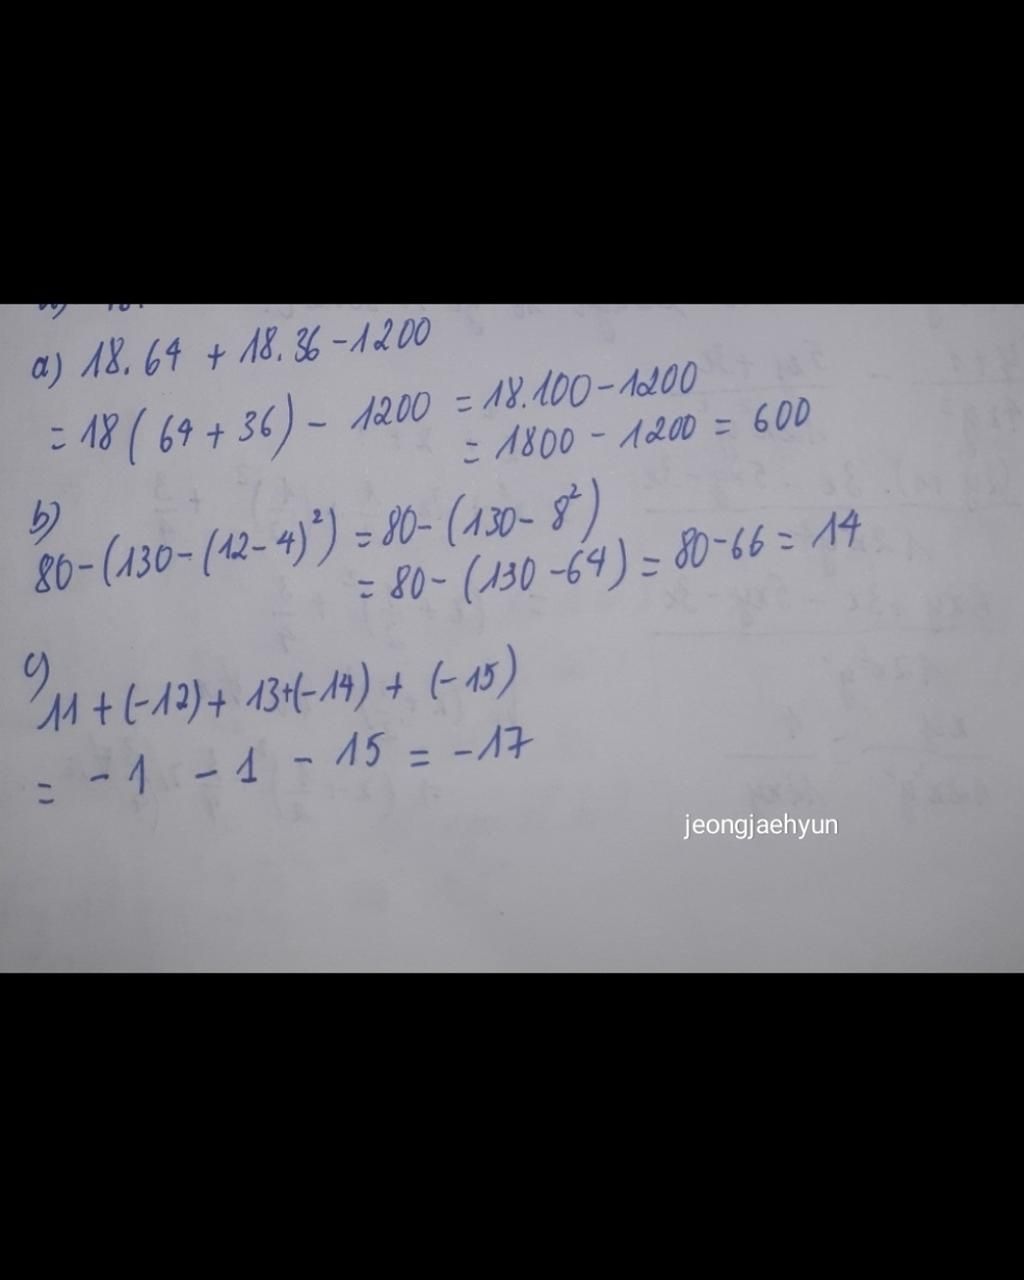 a) 18.64 + 18.36 - 1200
= 18(64 + 36) - 1200 = 18.100 - 1200
= 1800 - 1200 = 600
b)
80 - (130 - (12 - 4)²) = 80 - (130 - 8²)
= 80 - (130 - 64) = 80 - 66 = 14
c)
11 + (-12) + 13 + (-14) + (-15)
= -1 - 1 - 15 = -17
jeongjaehyun